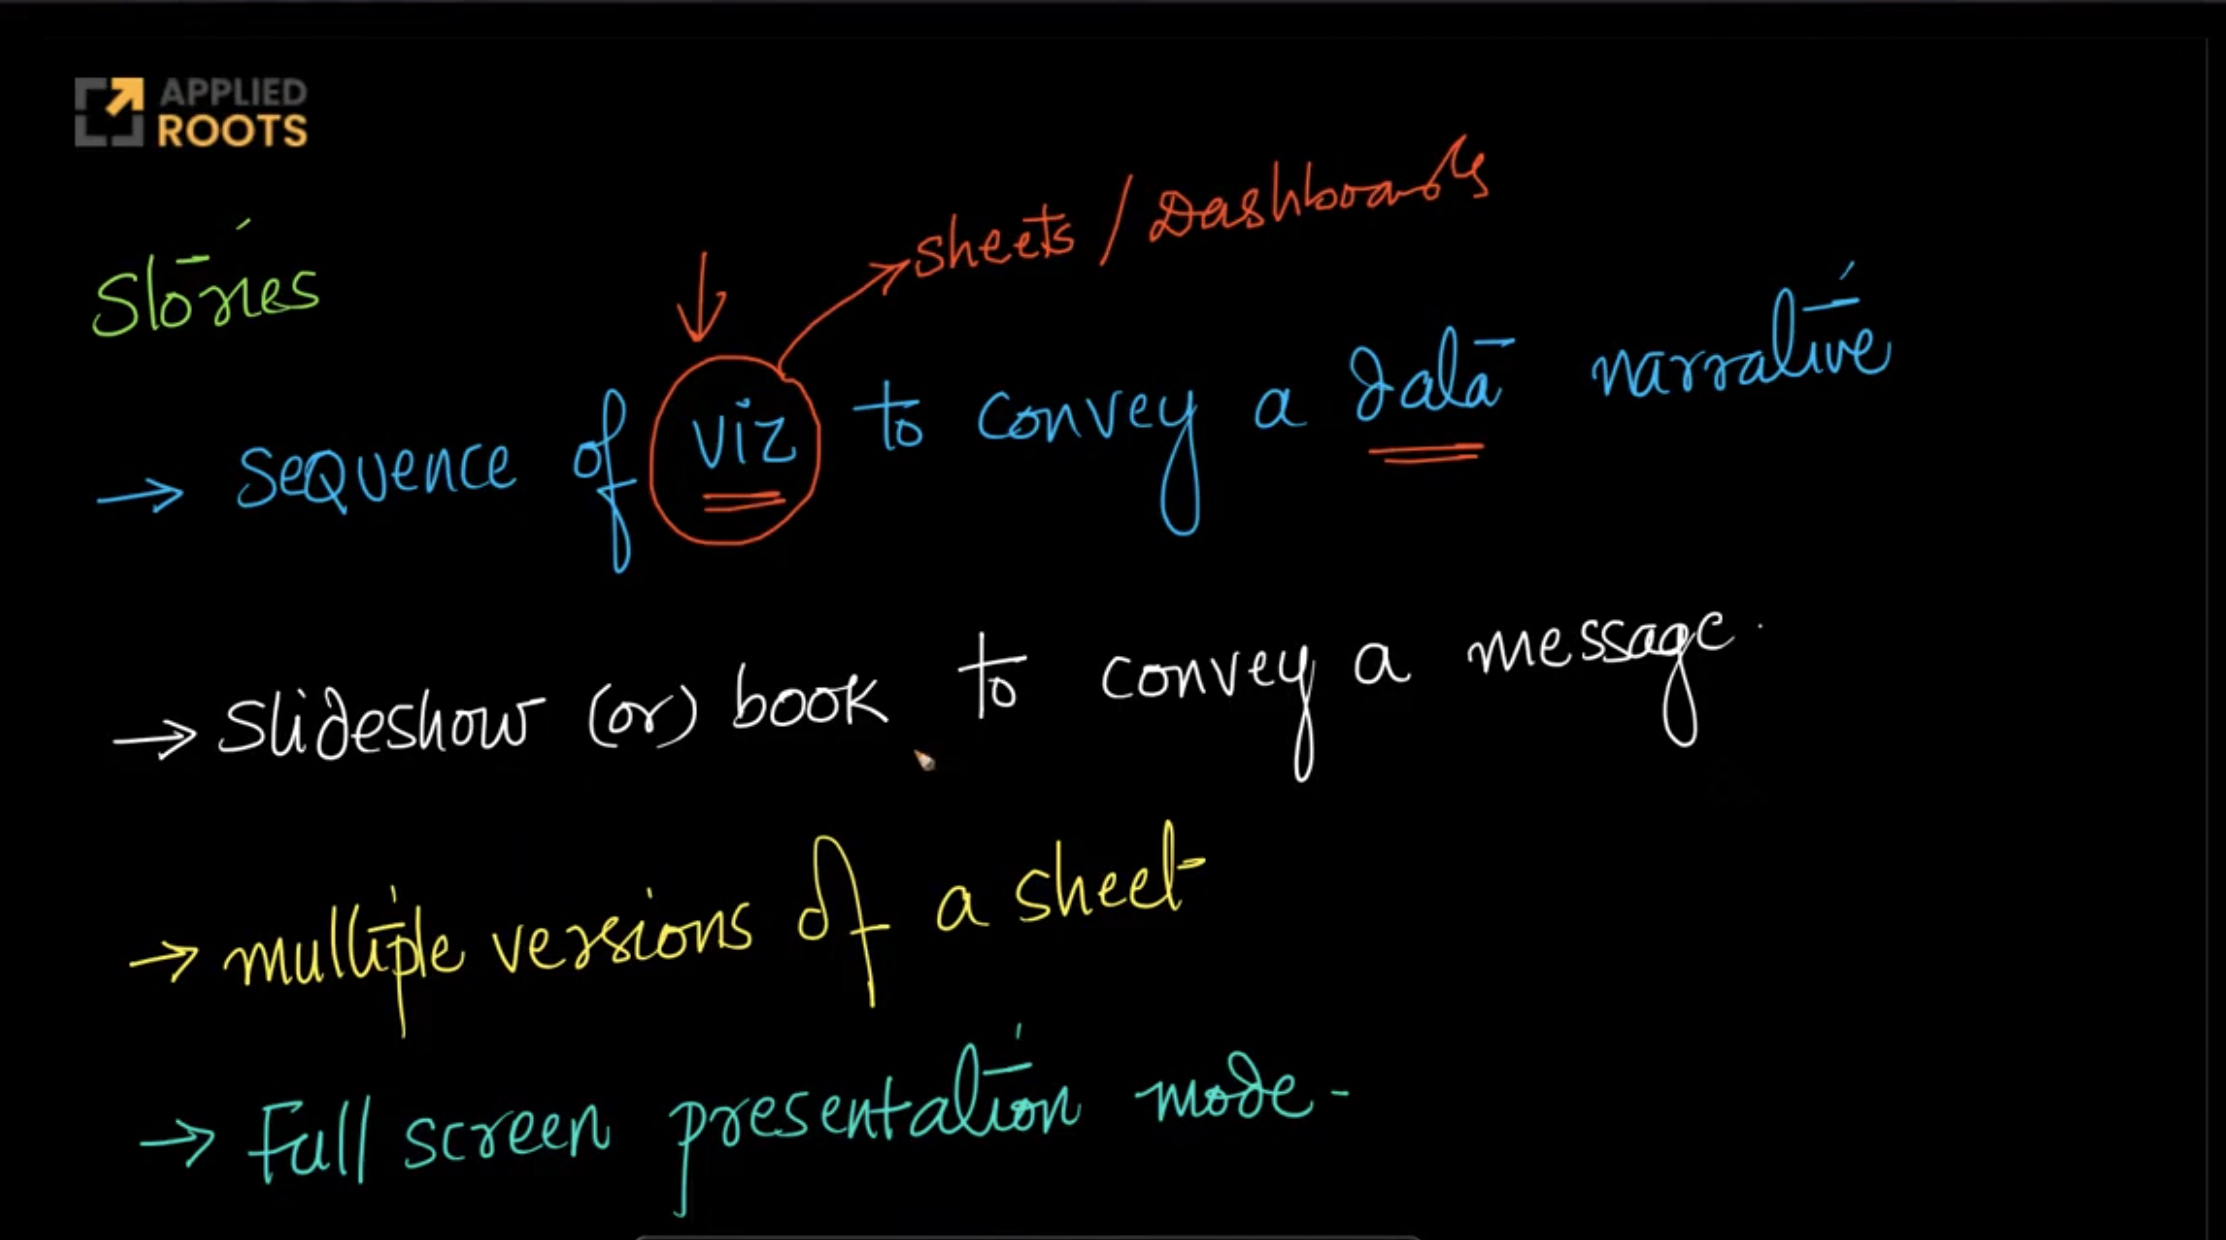 APPLIED
ROOTS
sheets / Dashboards
Stories
→ sequence of viz to convey a data narrative
→ slideshow (or) book to convey a message.
→ multiple versions of a sheet
→ Full screen presentation mode -